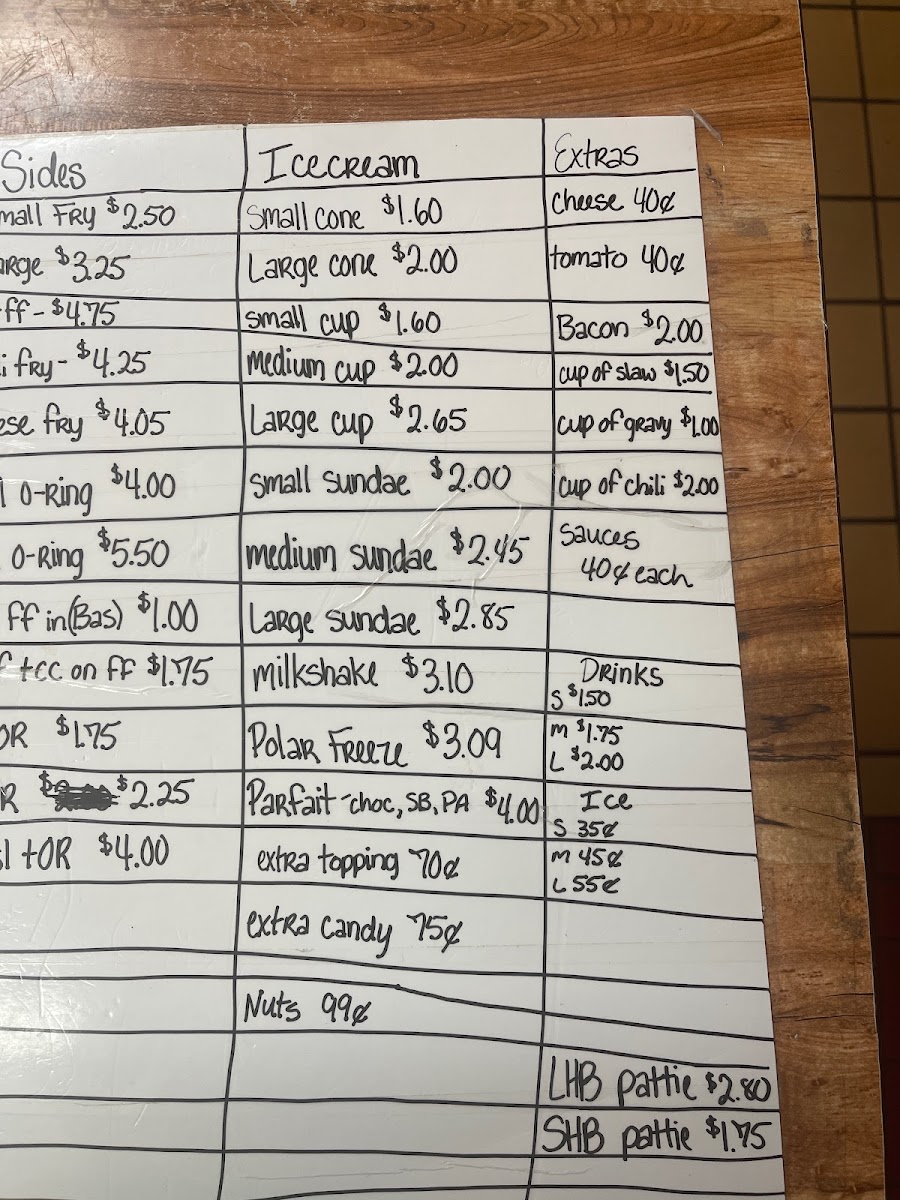 Sides
mall FRy $2.50
arge $3.25
ff - $4.75
i fry - $4.25
ese fry $4.05
l O-Ring $4.00
O-Ring $5.50
ff in(Bas) $1.00
f tcc on ff $1.75
OR $1.75
R $2.25
l tOR $4.00
Icecream
small cone $1.60
Large cone $2.00
small cup $1.60
medium cup $2.00
Large cup $2.65
small sundae $2.00
medium sundae $2.45
Large sundae $2.85
milkshake $3.10
Polar Freeze $3.09
Parfait - choc, SB, PA $4.00
extra topping 70¢
extra candy 75¢
Nuts 99¢
Extras
cheese 40¢
tomato 40¢
Bacon $2.00
cup of slaw $1.50
cup of gravy $1.00
cup of chili $2.00
Sauces
40¢ each
Drinks
S $1.50
m $1.75
L $2.00
Ice
S 35¢
m 45¢
L 55¢
LHB pattie $2.80
SHB pattie $1.75